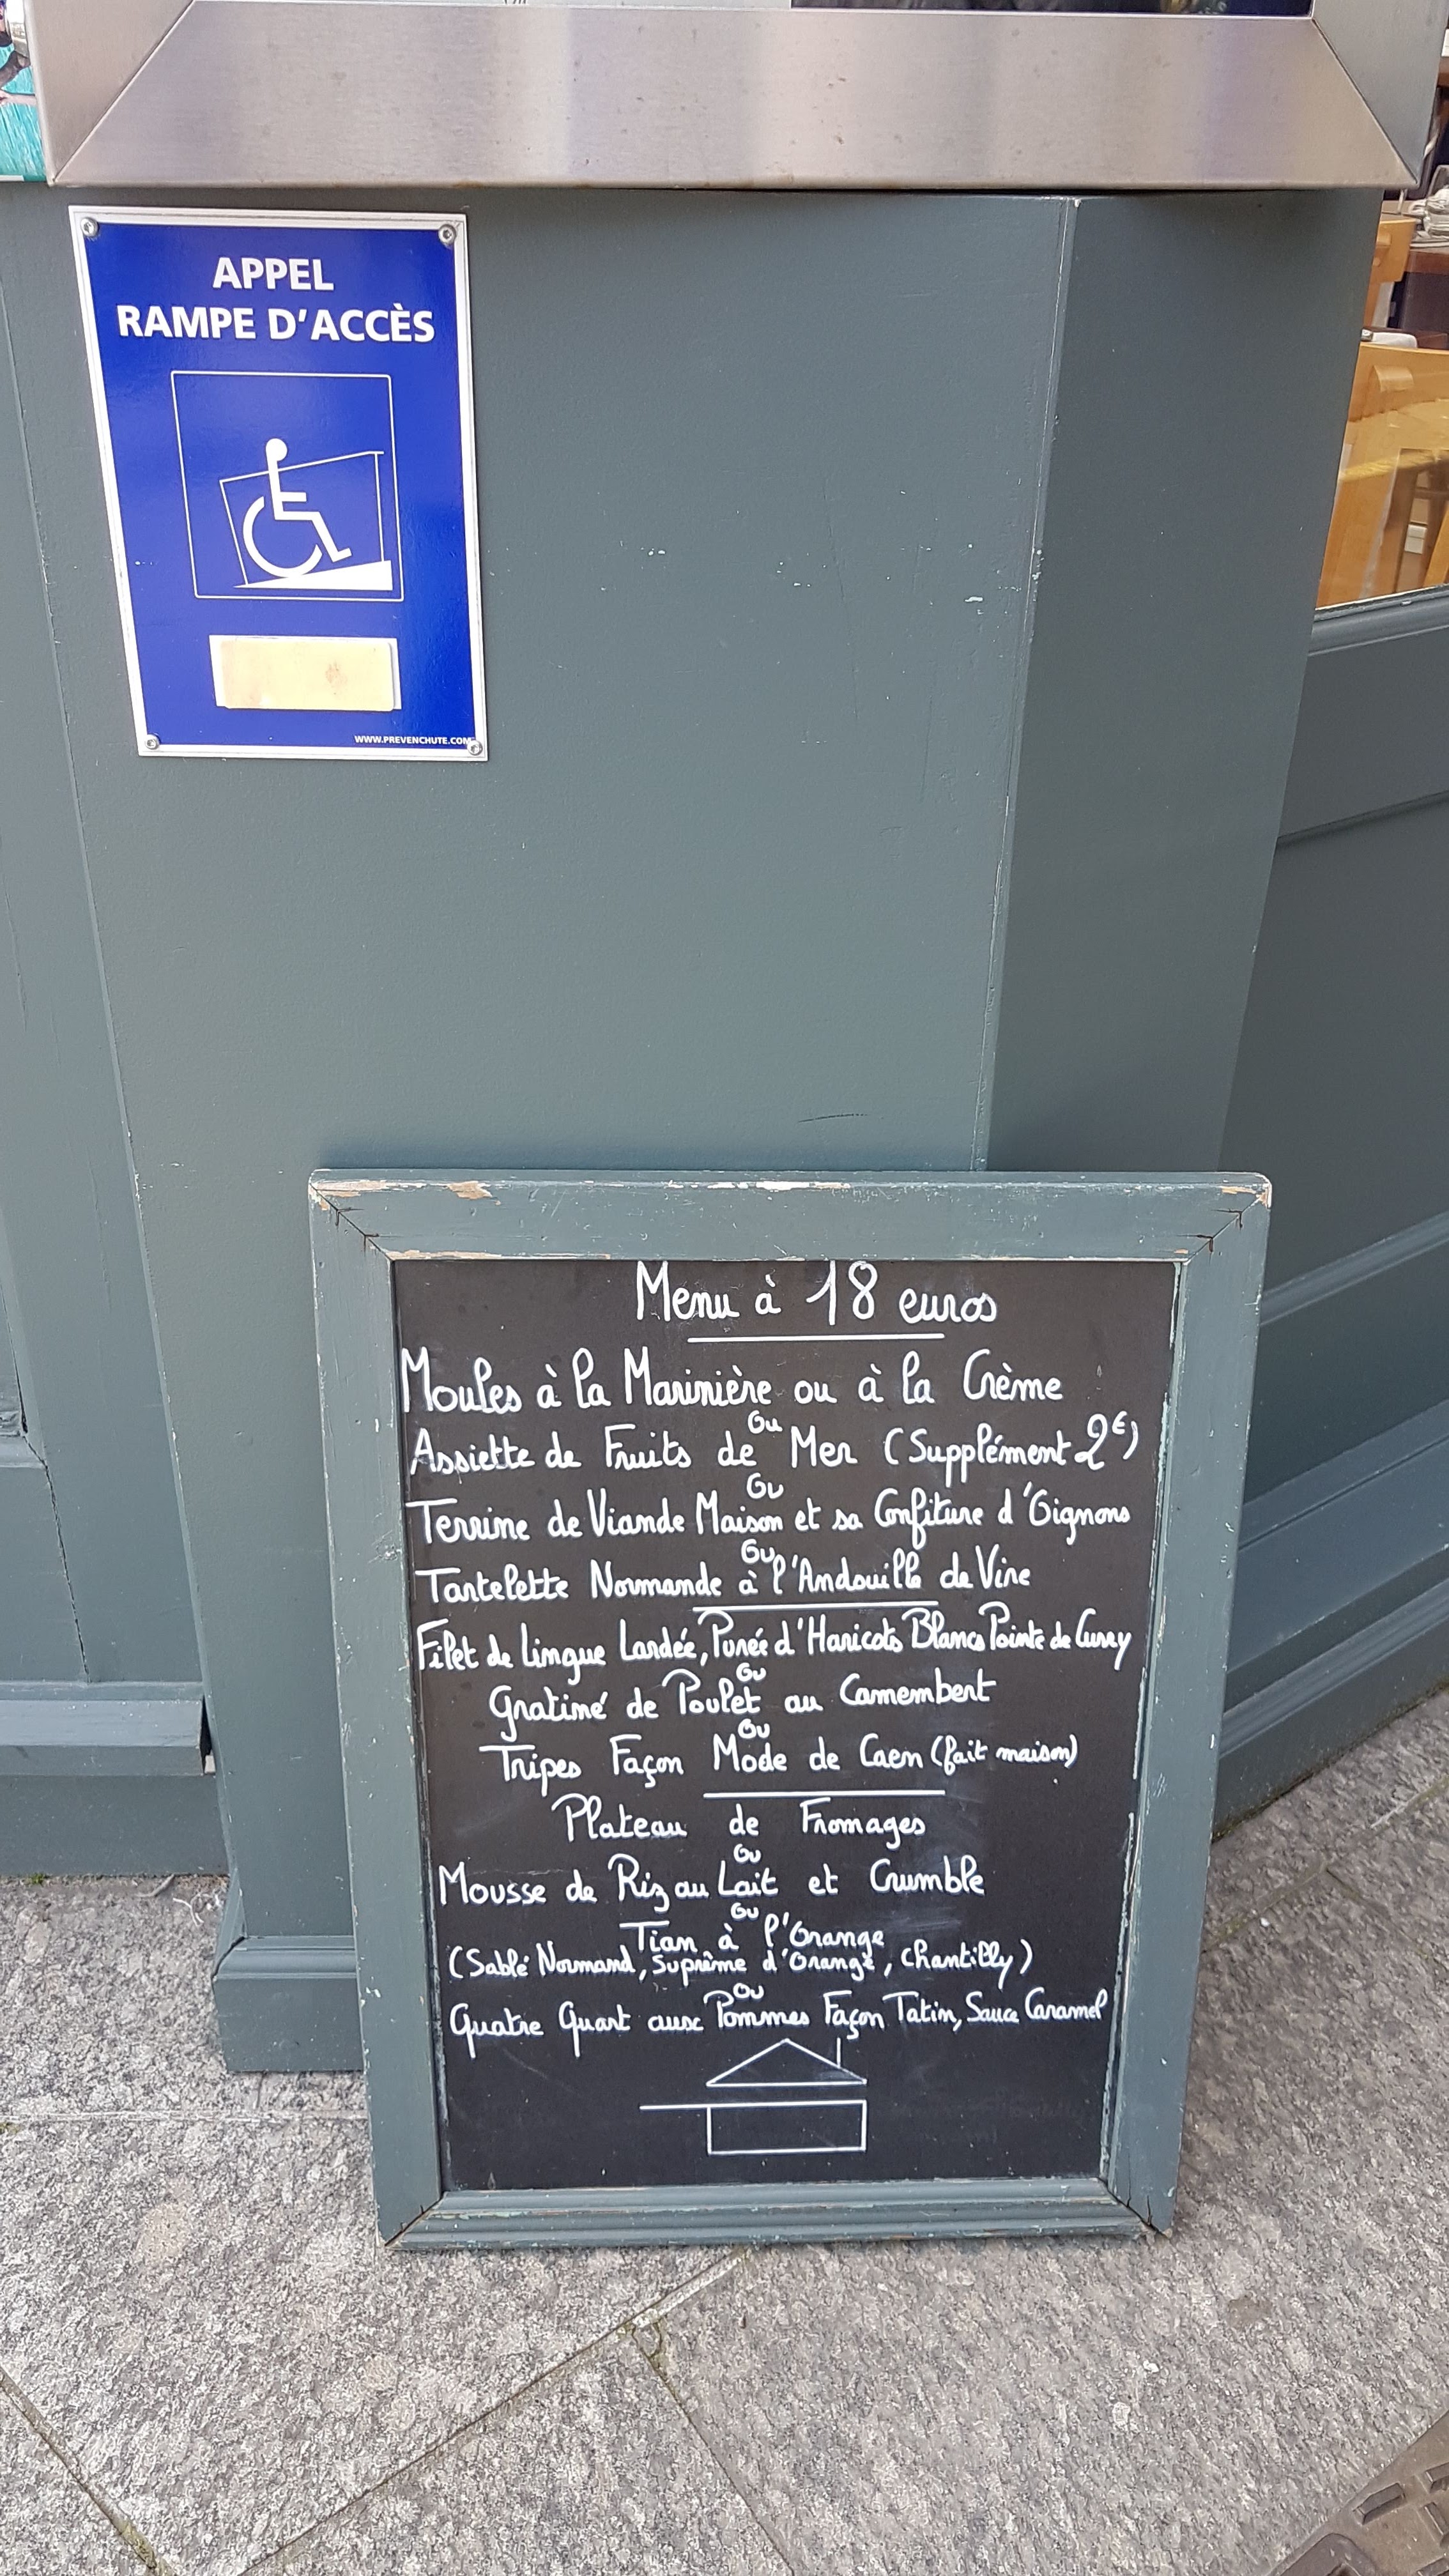 APPEL
RAMPE D'ACCÈS
WWW.PREVENCHUTE.COM
Menu à 18 euros
Moules à la Marinière ou à la Crème
Ou
Assiette de Fruits de Mer (Supplément 2€)
Ou
Terrine de Viande Maison et sa Confiture d'Oignons
Ou
Tartelette Normande à l'Andouille de Vire
Filet de Lingue Lardée, Purée d'Haricots Blancs Pointe de Curry
Ou
Gratiné de Poulet au Camembert
Ou
Tripes Façon Mode de Caen (fait maison)
Plateau de Fromages
Ou
Mousse de Riz au Lait et Crumble
Ou
Tian à l'Orange
(Sablé Normand, Suprême d'Orange, Chantilly)
Ou
Quatre Quart aux Pommes Façon Tatin, Sauce Caramel